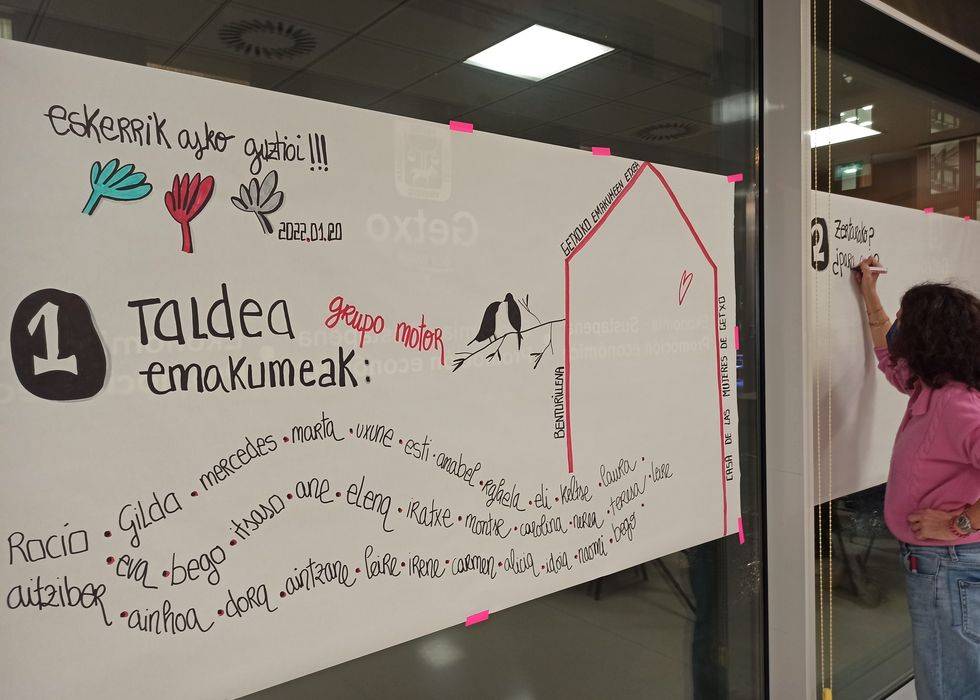 eskerrik asko guztioi!!!
2022.01.20
1 Taldea
emakumeak:
grupo motor
Getxo
GETXOKO EMAKUMEEN ETXEA
BENTURILLENA
CASA DE LAS MUJERES DE GETXO
Rocío · Gilda · mercedes · marta · uxune · esti · anabel · rafaela · eli · koltxe · laura ·
· eva · bego · itsaso · ane · elena · iratxe · montse · carolina · nerea · teresa · leire
aitziber · ainhoa · dora · aintzane · leire · irene · carmen · alicia · idoia · naomi · bego ·
2 Zertarako?
¿para